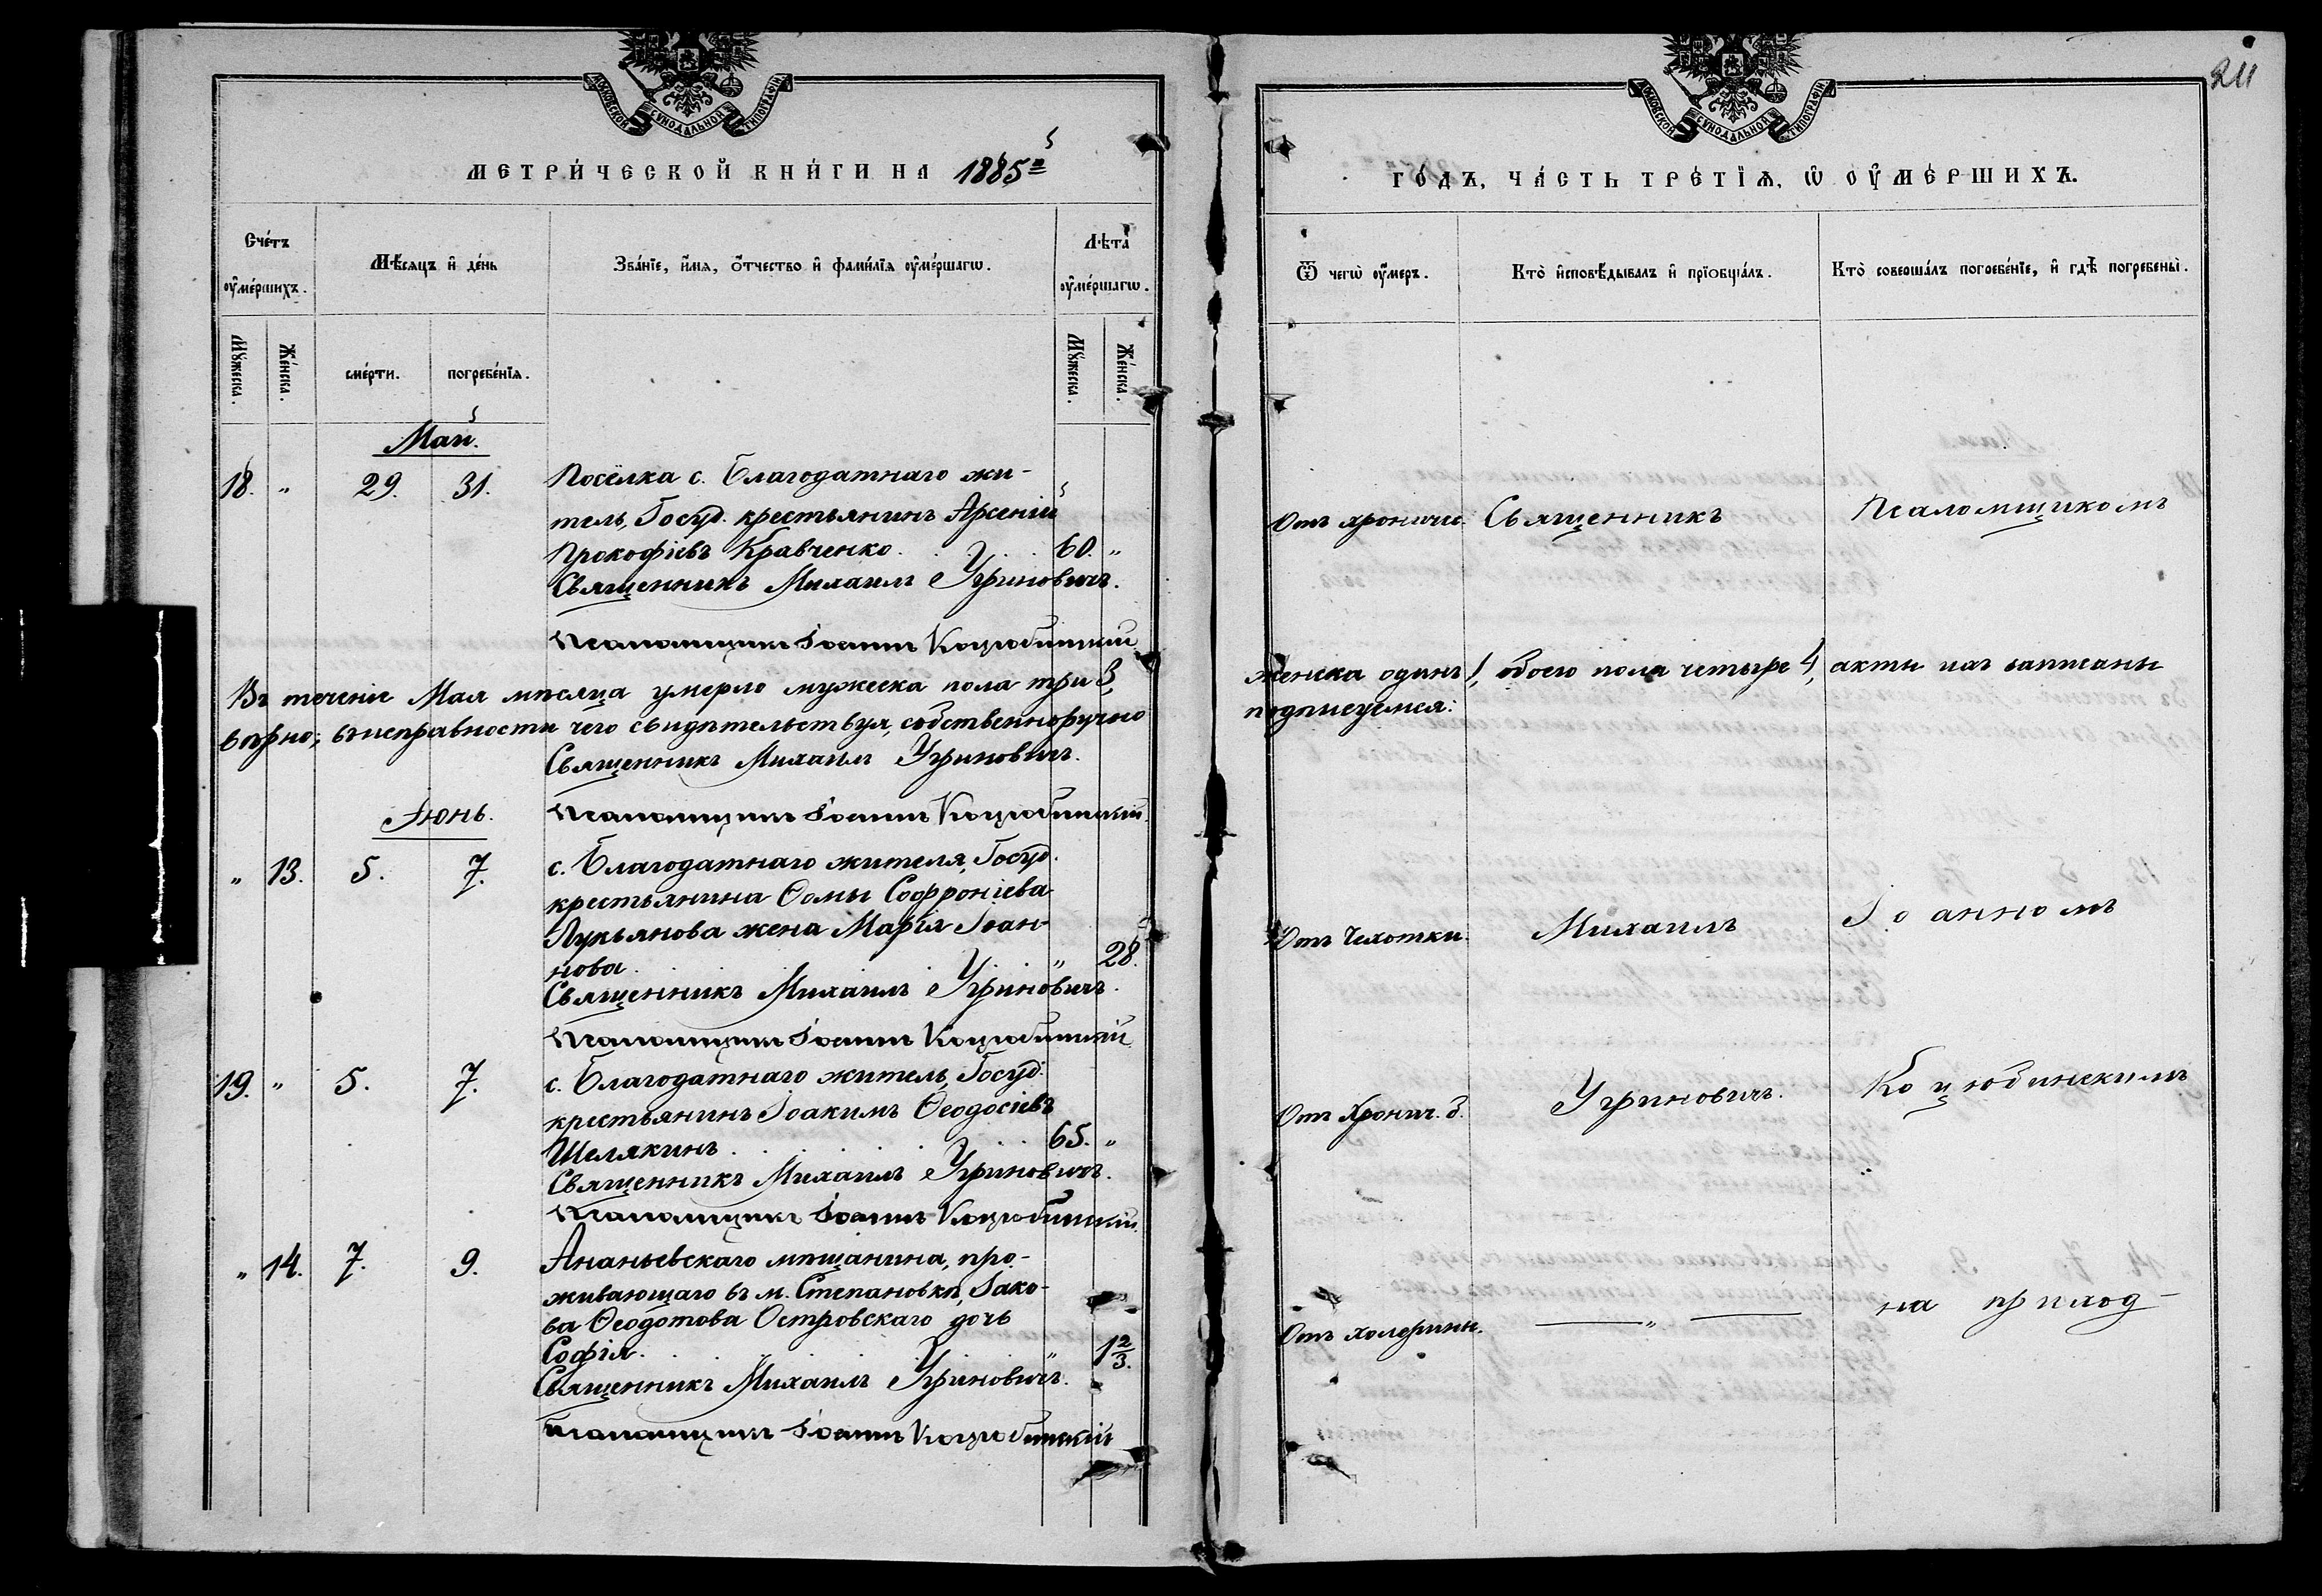 МОСКОВСКОЙ СѴНОДАЛЬНОЙ ТИПОГРАФІИ
МЕТРИ́ЧЕСКОЙ КНИ́ГИ НА 1885й
Сче́тъ ᲂу҆ме́ршихъ.
Мѣ́сяцъ и҆ де́нь
Зва́нїе, и҆́мя, ѻ҆́тчество и҆ фами́лїя ᲂу҆ме́ршагѡ.
Лѣ́та ᲂу҆ме́ршагѡ.
Мꙋ́жеска.
Же́нска.
сме́рти.
погребе́нїя.
Мꙋ́жеска.
Же́нска.
Май.
18. " 29. 31. Посёлка с. Благодатнаго жи-
тель, Госуд. крестьянинъ Арсеній
Прокофіевъ Кравченко. 60. "
Священникъ Михаилъ Угриновичъ.
Псаломщикъ Іоаннъ Коцюбинскій
Въ теченіе Мая мѣсяца умерло мужеска пола три 3,
вѣрно; въ исправности чего свидѣтельствуя, собственноручно
Священникъ Михаилъ Угриновичъ.
Псаломщикъ Іоаннъ Коцюбинскій.
Іюнь.
" 13. 5. 7. с. Благодатнаго жителя, Госуд.
крестьянина Ѳомы Софроніева
Лукьянова жена Марія Іоан-
нова. " 28.
Священникъ Михаилъ Угриновичъ.
Псаломщикъ Іоаннъ Коцюбинскій
19. " 5. 7. с. Благодатнаго житель, Госуд.
крестьянинъ Іоакимъ Ѳеодосіевъ
Шелякинъ. 65. "
Священникъ Михаилъ Угриновичъ.
Псаломщикъ Іоаннъ Коцюбинскій.
" 14. 7. 9. Ананьевскаго мѣщанина, про-
живающаго въ м. Степановкѣ, Іако-
ва Ѳеодотова Островскаго дочь
Софія. " 1 2/3.
Священникъ Михаилъ Угриновичъ.
Псаломщикъ Іоаннъ Коцюбинскій
211
МОСКОВСКОЙ СѴНОДАЛЬНОЙ ТИПОГРАФІИ
ГО́ДЪ, ЧА́СТЬ ТРЕ́ТЇѦ, Ѡ҆ ОУ҆МЕ́РШИХЪ.
Ѿ чегѡ̀ ᲂу҆́меръ.
Кто̀ и҆сповѣ́дывалъ и҆ прїобща́лъ.
Кто̀ соверша́лъ погребе́нїе, и҆ гдѣ̀ погребены̀.
Отъ хроничес. Священникъ Псаломщикомъ
женска одинъ 1, обоего пола четыре 4, акты ихъ записаны
подписуемся:
Отъ Чахотки. Михаилъ Іоанномъ
Отъ Хронич. б. Угриновичъ. Коцюбинскимъ
Отъ холерины. — " — на приход-